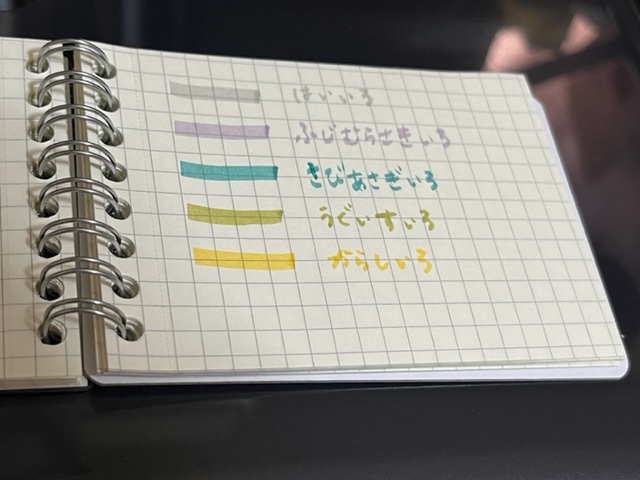 はいいろ
ふじむらさきいろ
さびあさぎいろ
うぐいすいろ
からしいろ